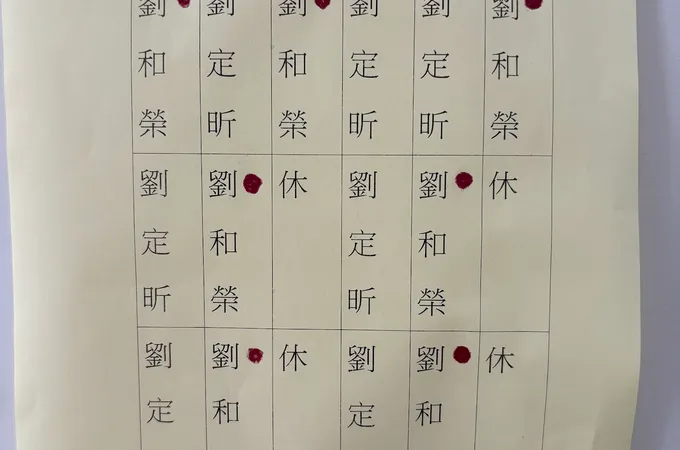 劉和榮
劉定昕
劉定昕
劉和榮
劉定昕
劉和榮
休
劉和榮
劉定昕
休
劉和榮
劉定昕
休
劉和
劉定
休
劉和
劉定